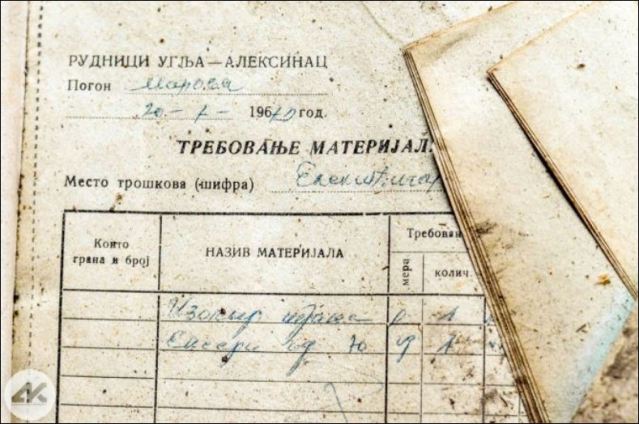 РУДНИЦИ УГЉА — АЛЕКСИНАЦ
Погон Морава
20-7- 1960 год.
ТРЕБОВАЊЕ МАТЕРИЈАЛ
Место трошкова (шифра)
Конто грана и број
НАЗИВ МАТЕРИЈАЛА
Требован
мера
колич.
Изолир трака
Ексери од 70